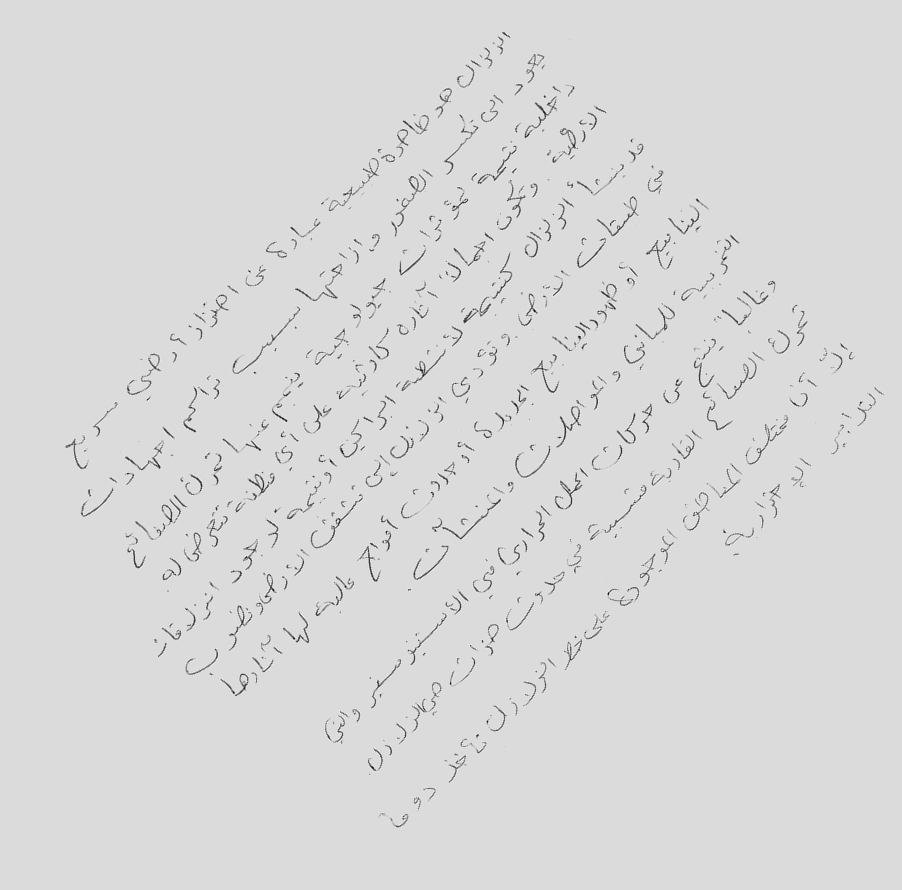 الزلزال هو ظاهرة طبيعية عبارة عن اهتزاز أرضي سريع
يعود الى تكسر الصخور وازاحتها بسبب تراكم اجهادات
داخلية نتيجة لمؤثرات جيولوجية ينجم عنها تحرك الصفائح
الأرضية. ويكون اجمالاً آثاره كارثية على أي منطقة تتعرض له.
قد ينشأ الزلزال كنتيجة لأنشطة البراكين أو نتيجة لوجود انزلاقات
في طبقات الأرض وتؤدي الزلازل إلى تشقق الأرض ونضوب
الينابيع أو ظهور الينابيع الجديدة أو حدوث أمواج عالية لها آثارها
التخريبية للمباني والمواصلات والمنشآت.
وغالباً ينتج عن حركات الحمل الحراري في الأستينوسفير والتي
تحرك الصفائح القارية متسببة في حدوث هزات هي الزلازل.
إلا أن مختلف المناطق الموجودة على خط الزلازل تأخذ دوما
التدابير الإحترازية